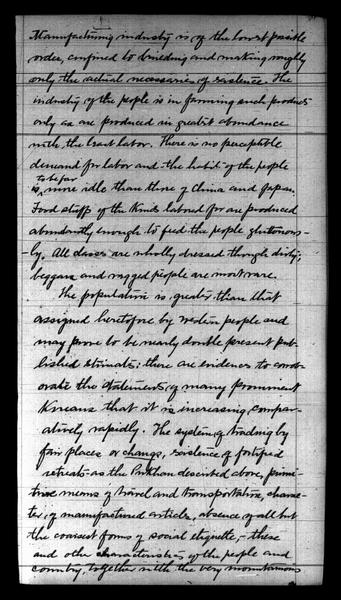 Manufacturing industry is of the lowest possible
order, confined to building and making roughly
only the actual necessaries of existence. The
industry of the people is in farming such products
only as are produced in greatest abundance
with the least labor. There is no perceptible
demand for labor and the habit of the people
to be far
is, more idle than those of China and Japan.
Food stuffs of the kinds labored for are produced
abundantly enough to feed the people gluttonous-
-ly. All classes are wholly dressed though dirty;
beggars and ragged people are most rare.
The population is greater than that
assigned heretofore by western people and
may prove to be nearly double present pub-
lished estimates; there are evidences to corrob-
orate the statements of many prominent
Koreans that it is increasing compar-
atively rapidly. The system of trading by
fair places or change, existence of fortified
retreats as the Pukhan described above, primi-
tive means of travel and transportation, charac-
ter of manufactured articles, absence of all but
the coarsest forms of social etiquette, - these
and other characteristics of the people and
country, together with the very mountainous